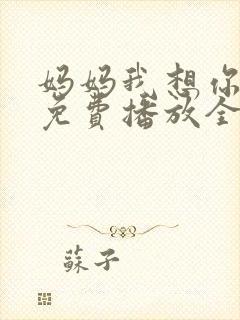 妈妈我想你
免費播放全
蘇子